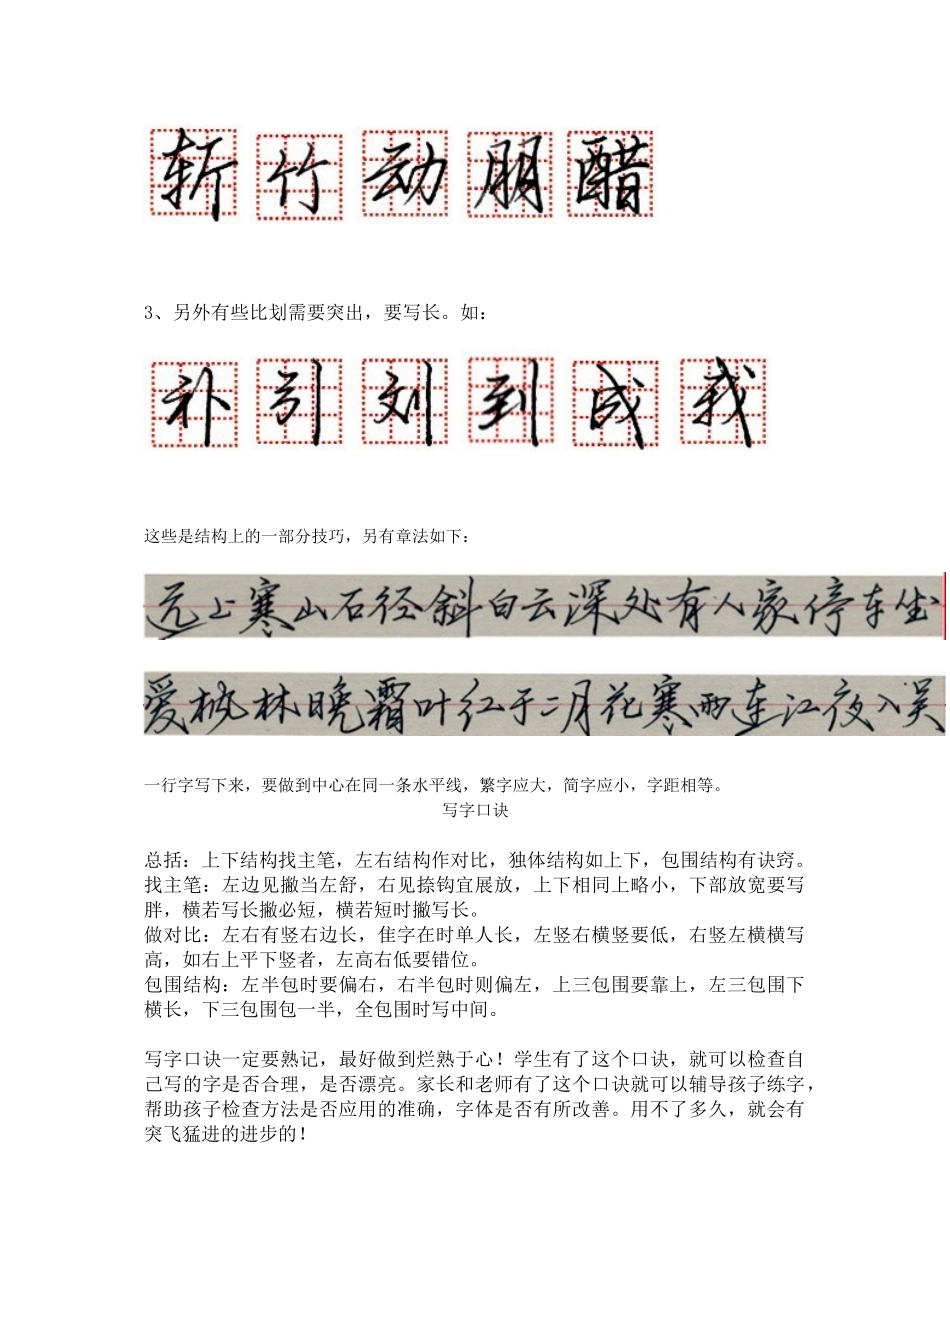 斩竹动朋醋
3、另外有些比划需要突出，要写长。如：
补引刘到成我
这些是结构上的一部分技巧，另有章法如下：
远上寒山石径斜白云深处有人家停车坐
爱枫林晚霜叶红于二月花寒雨连江夜入吴
一行字写下来，要做到中心在同一条水平线，繁字应大，简字应小，字距相等。
写字口诀
总括：上下结构找主笔，左右结构作对比，独体结构如上下，包围结构有诀窍。
找主笔：左边见撇当左舒，右见捺钩宜展放，上下相同上略小，下部放宽要写
胖，横若写长撇必短，横若短时撇写长。
做对比：左右有竖右边长，隹字在时单人长，左竖右横竖要低，右竖左横横写
高，如右上平下竖者，左高右低要错位。
包围结构：左半包时要偏右，右半包时则偏左，上三包围要靠上，左三包围下
横长，下三包围包一半，全包围时写中间。
写字口诀一定要熟记，最好做到烂熟于心！学生有了这个口诀，就可以检查自
己写的字是否合理，是否漂亮。家长和老师有了这个口诀就可以辅导孩子练字，
帮助孩子检查方法是否应用的准确，字体是否有所改善。用不了多久，就会有
突飞猛进的进步的！